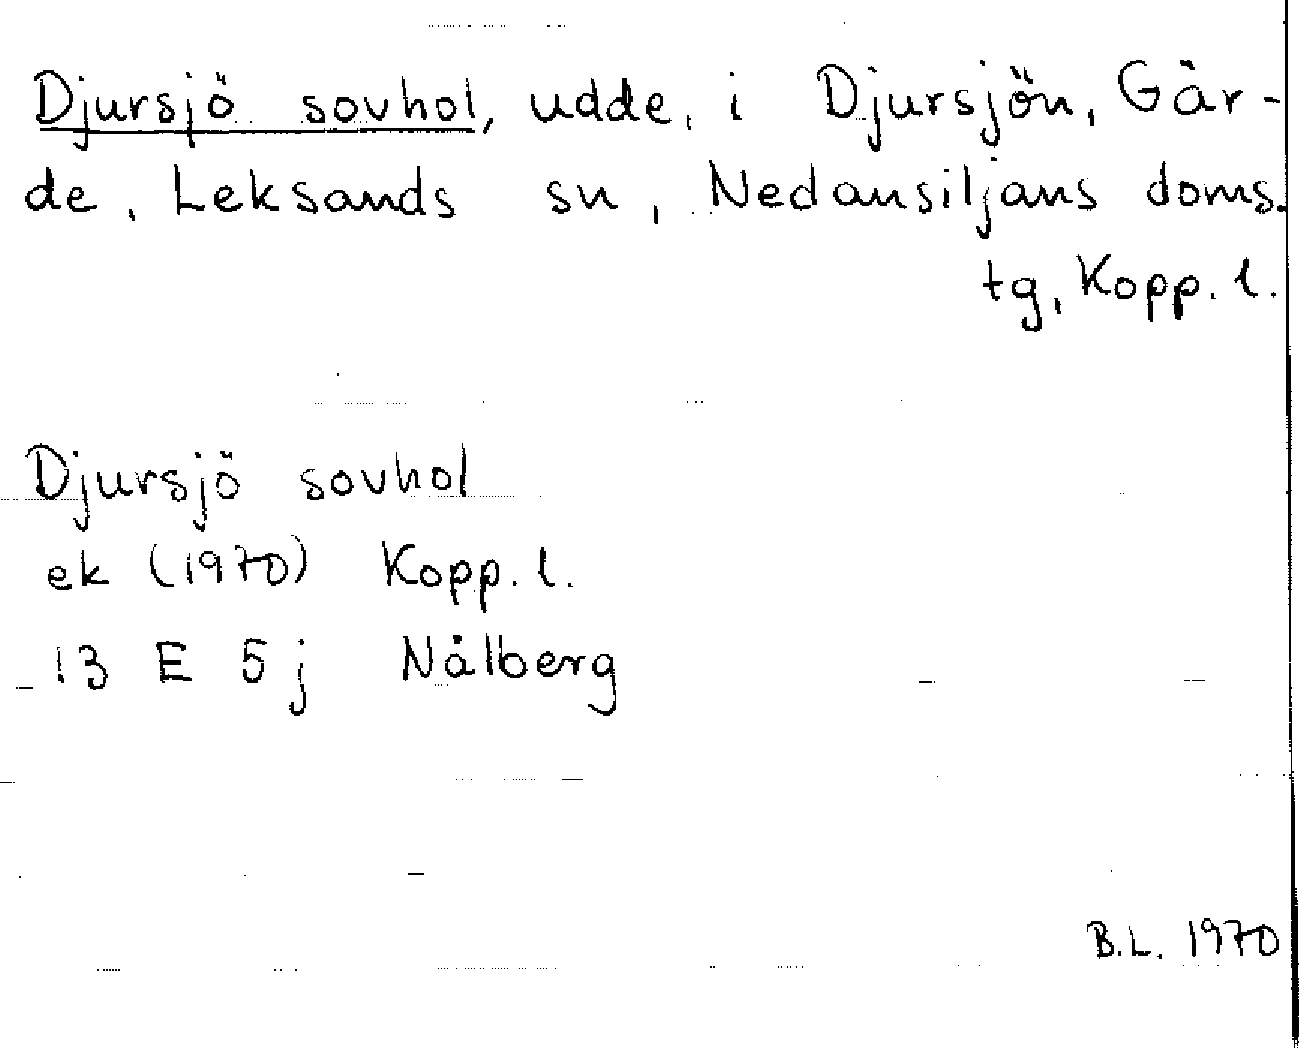 Djursjö sovhol, udde, i Djursjön, Gär-
de, Leksands sn, Nedansiljans doms.
tg, Kopp. l.
Djursjö sovhol
ek (1970) Kopp. l.
13 E 5j Nålberg
B.L. 1970